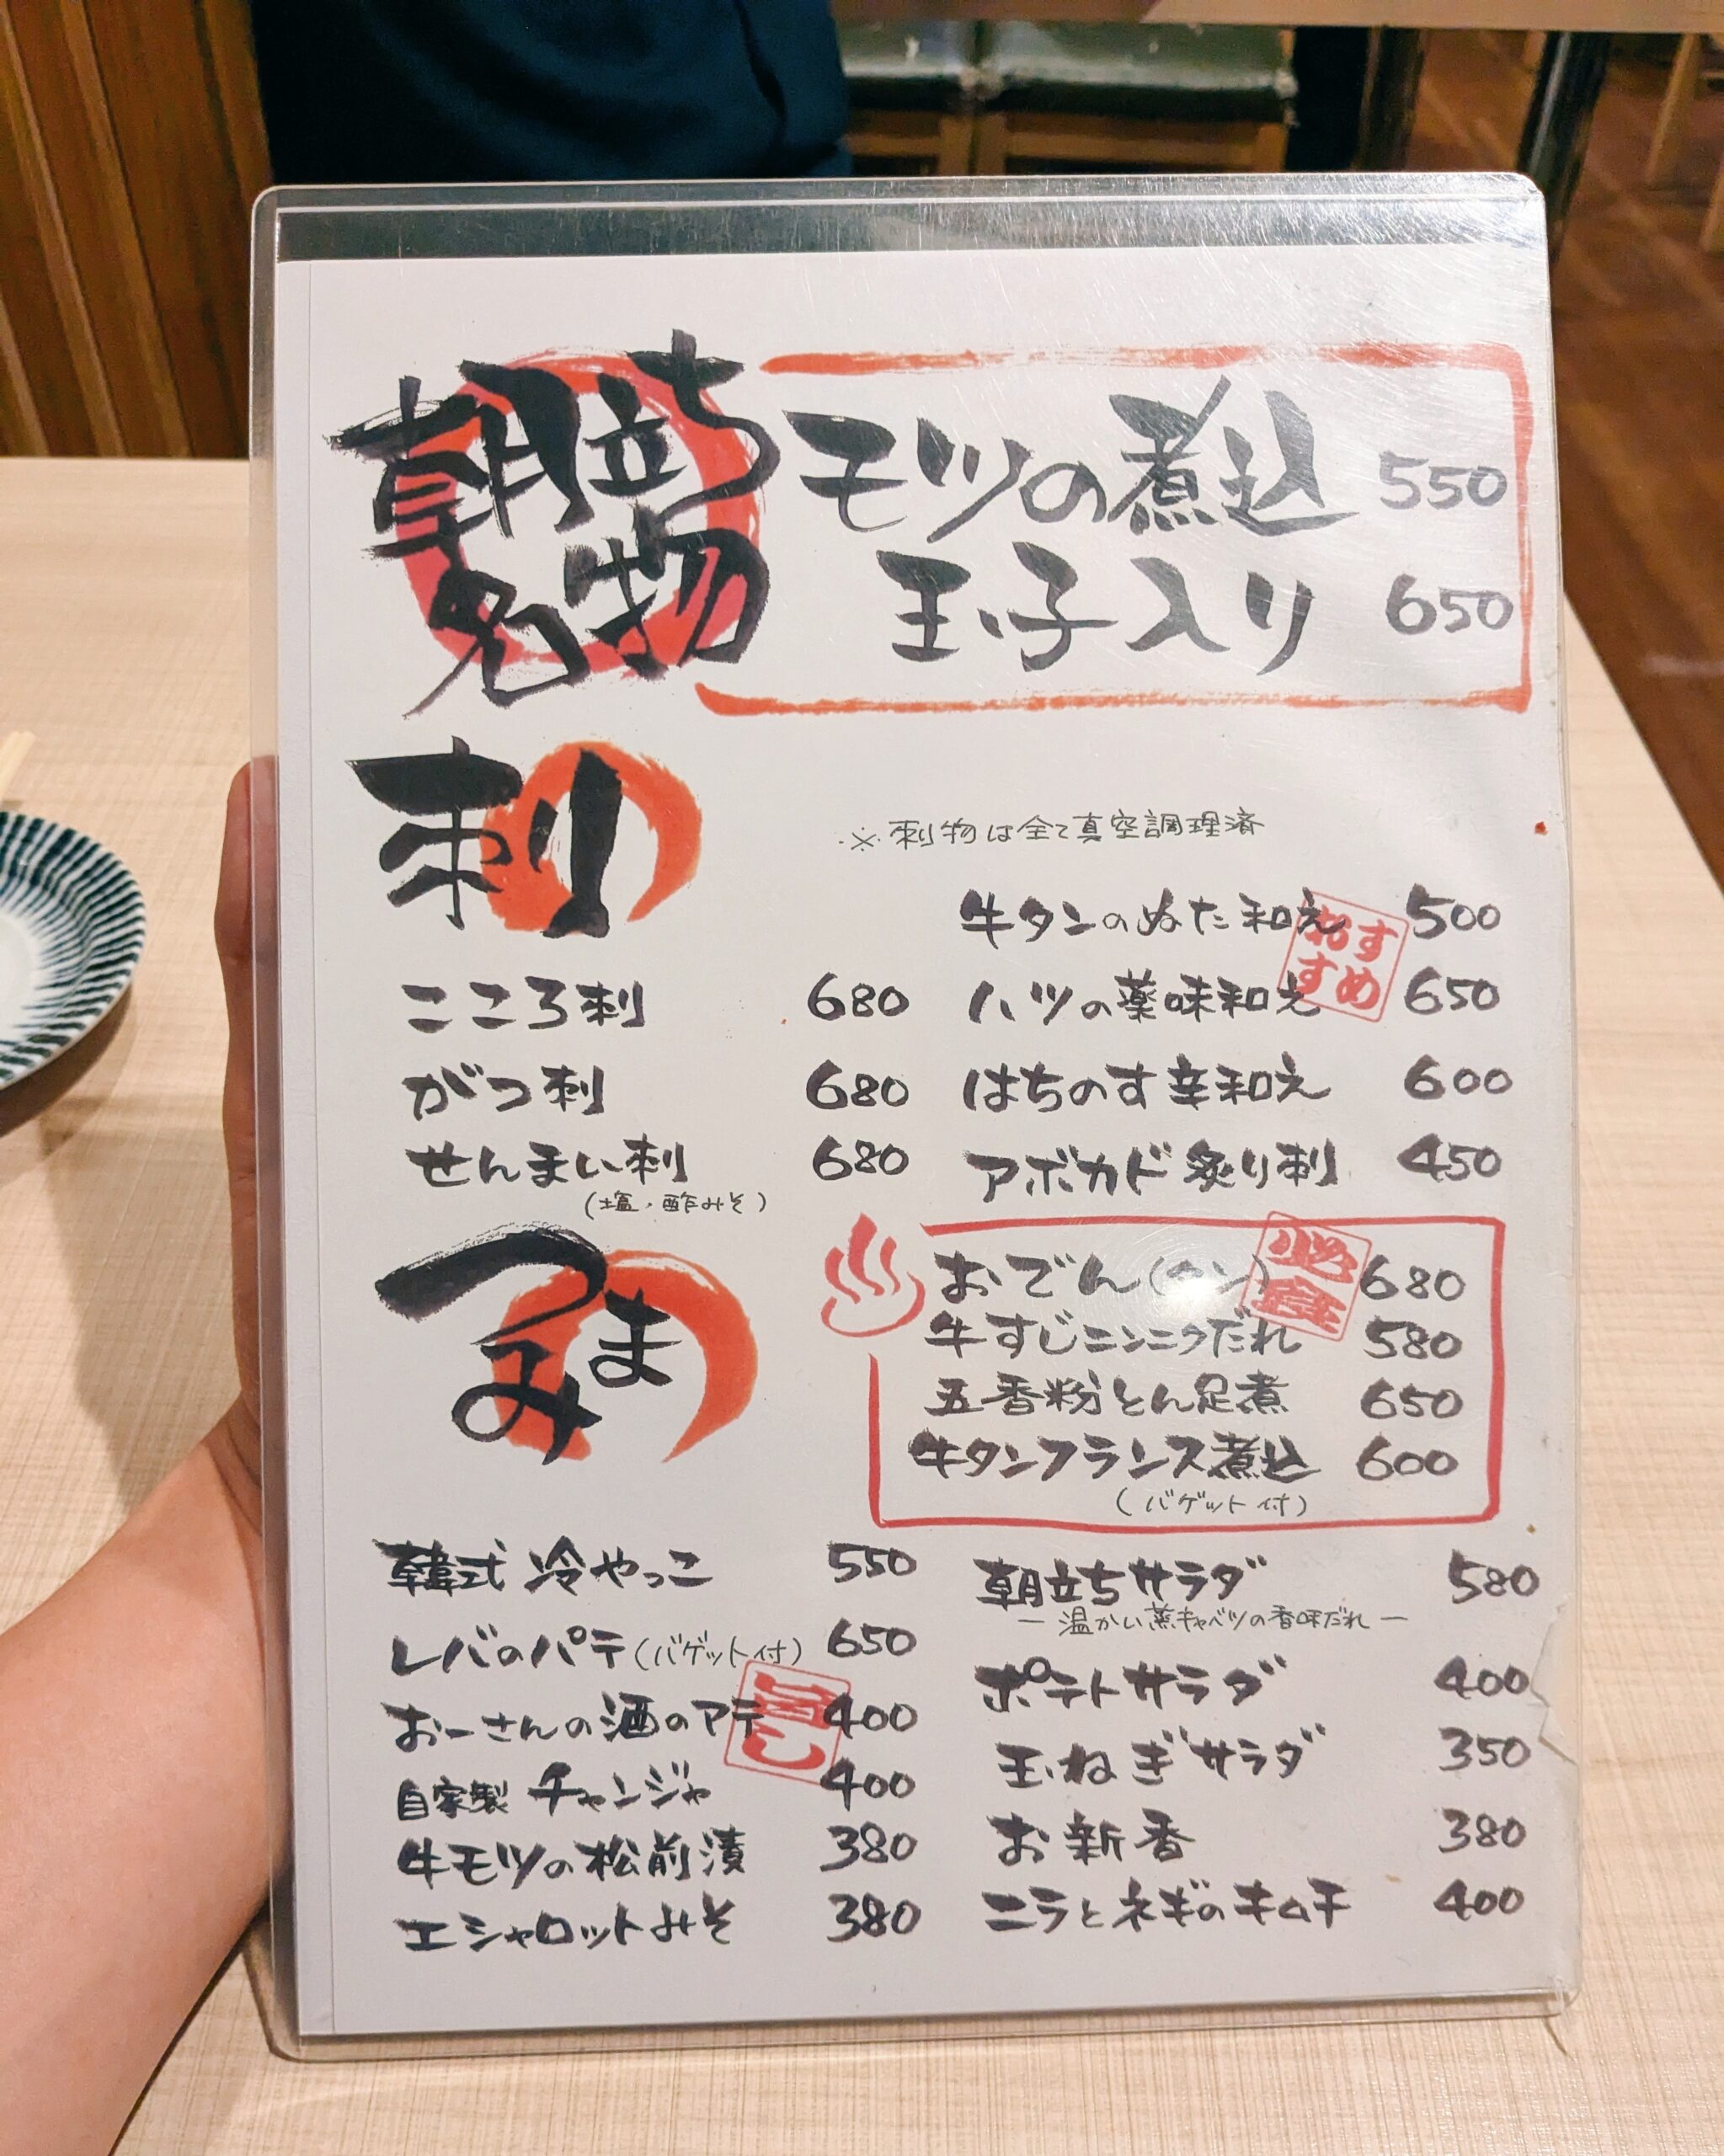 朝立ち
名物
モツの煮込 550
玉子入り 650
刺
※刺物は全て真空調理済
こころ刺 680
がつ刺 680
せんまい刺 680
(塩・酢みそ)
牛タンのぬた和え 500
おすすめ
ハツの薬味和え 650
はちのす辛和え 600
アボカド炙り刺 450
つまみ
おでん 680
必食
牛すじニンニクだれ 580
五香粉とん足煮 650
牛タンフランス煮込 600
(バゲット付)
韓式 冷やっこ 550
レバのパテ(バゲット付) 650
おーさんの酒のアテ 400
旨し
自家製 チャンジャ 400
牛モツの松前漬 380
エシャロットみそ 380
朝立ちサラダ 580
ー温かい蒸キャベツの香味だれー
ポテトサラダ 400
玉ねぎサラダ 350
お新香 380
ニラとネギのキムチ 400